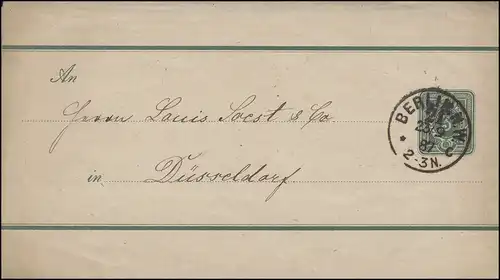 An
Herrn Louis Soest & Co
in Düsseldorf
BERLIN N.W.
87
* 2-3N. C